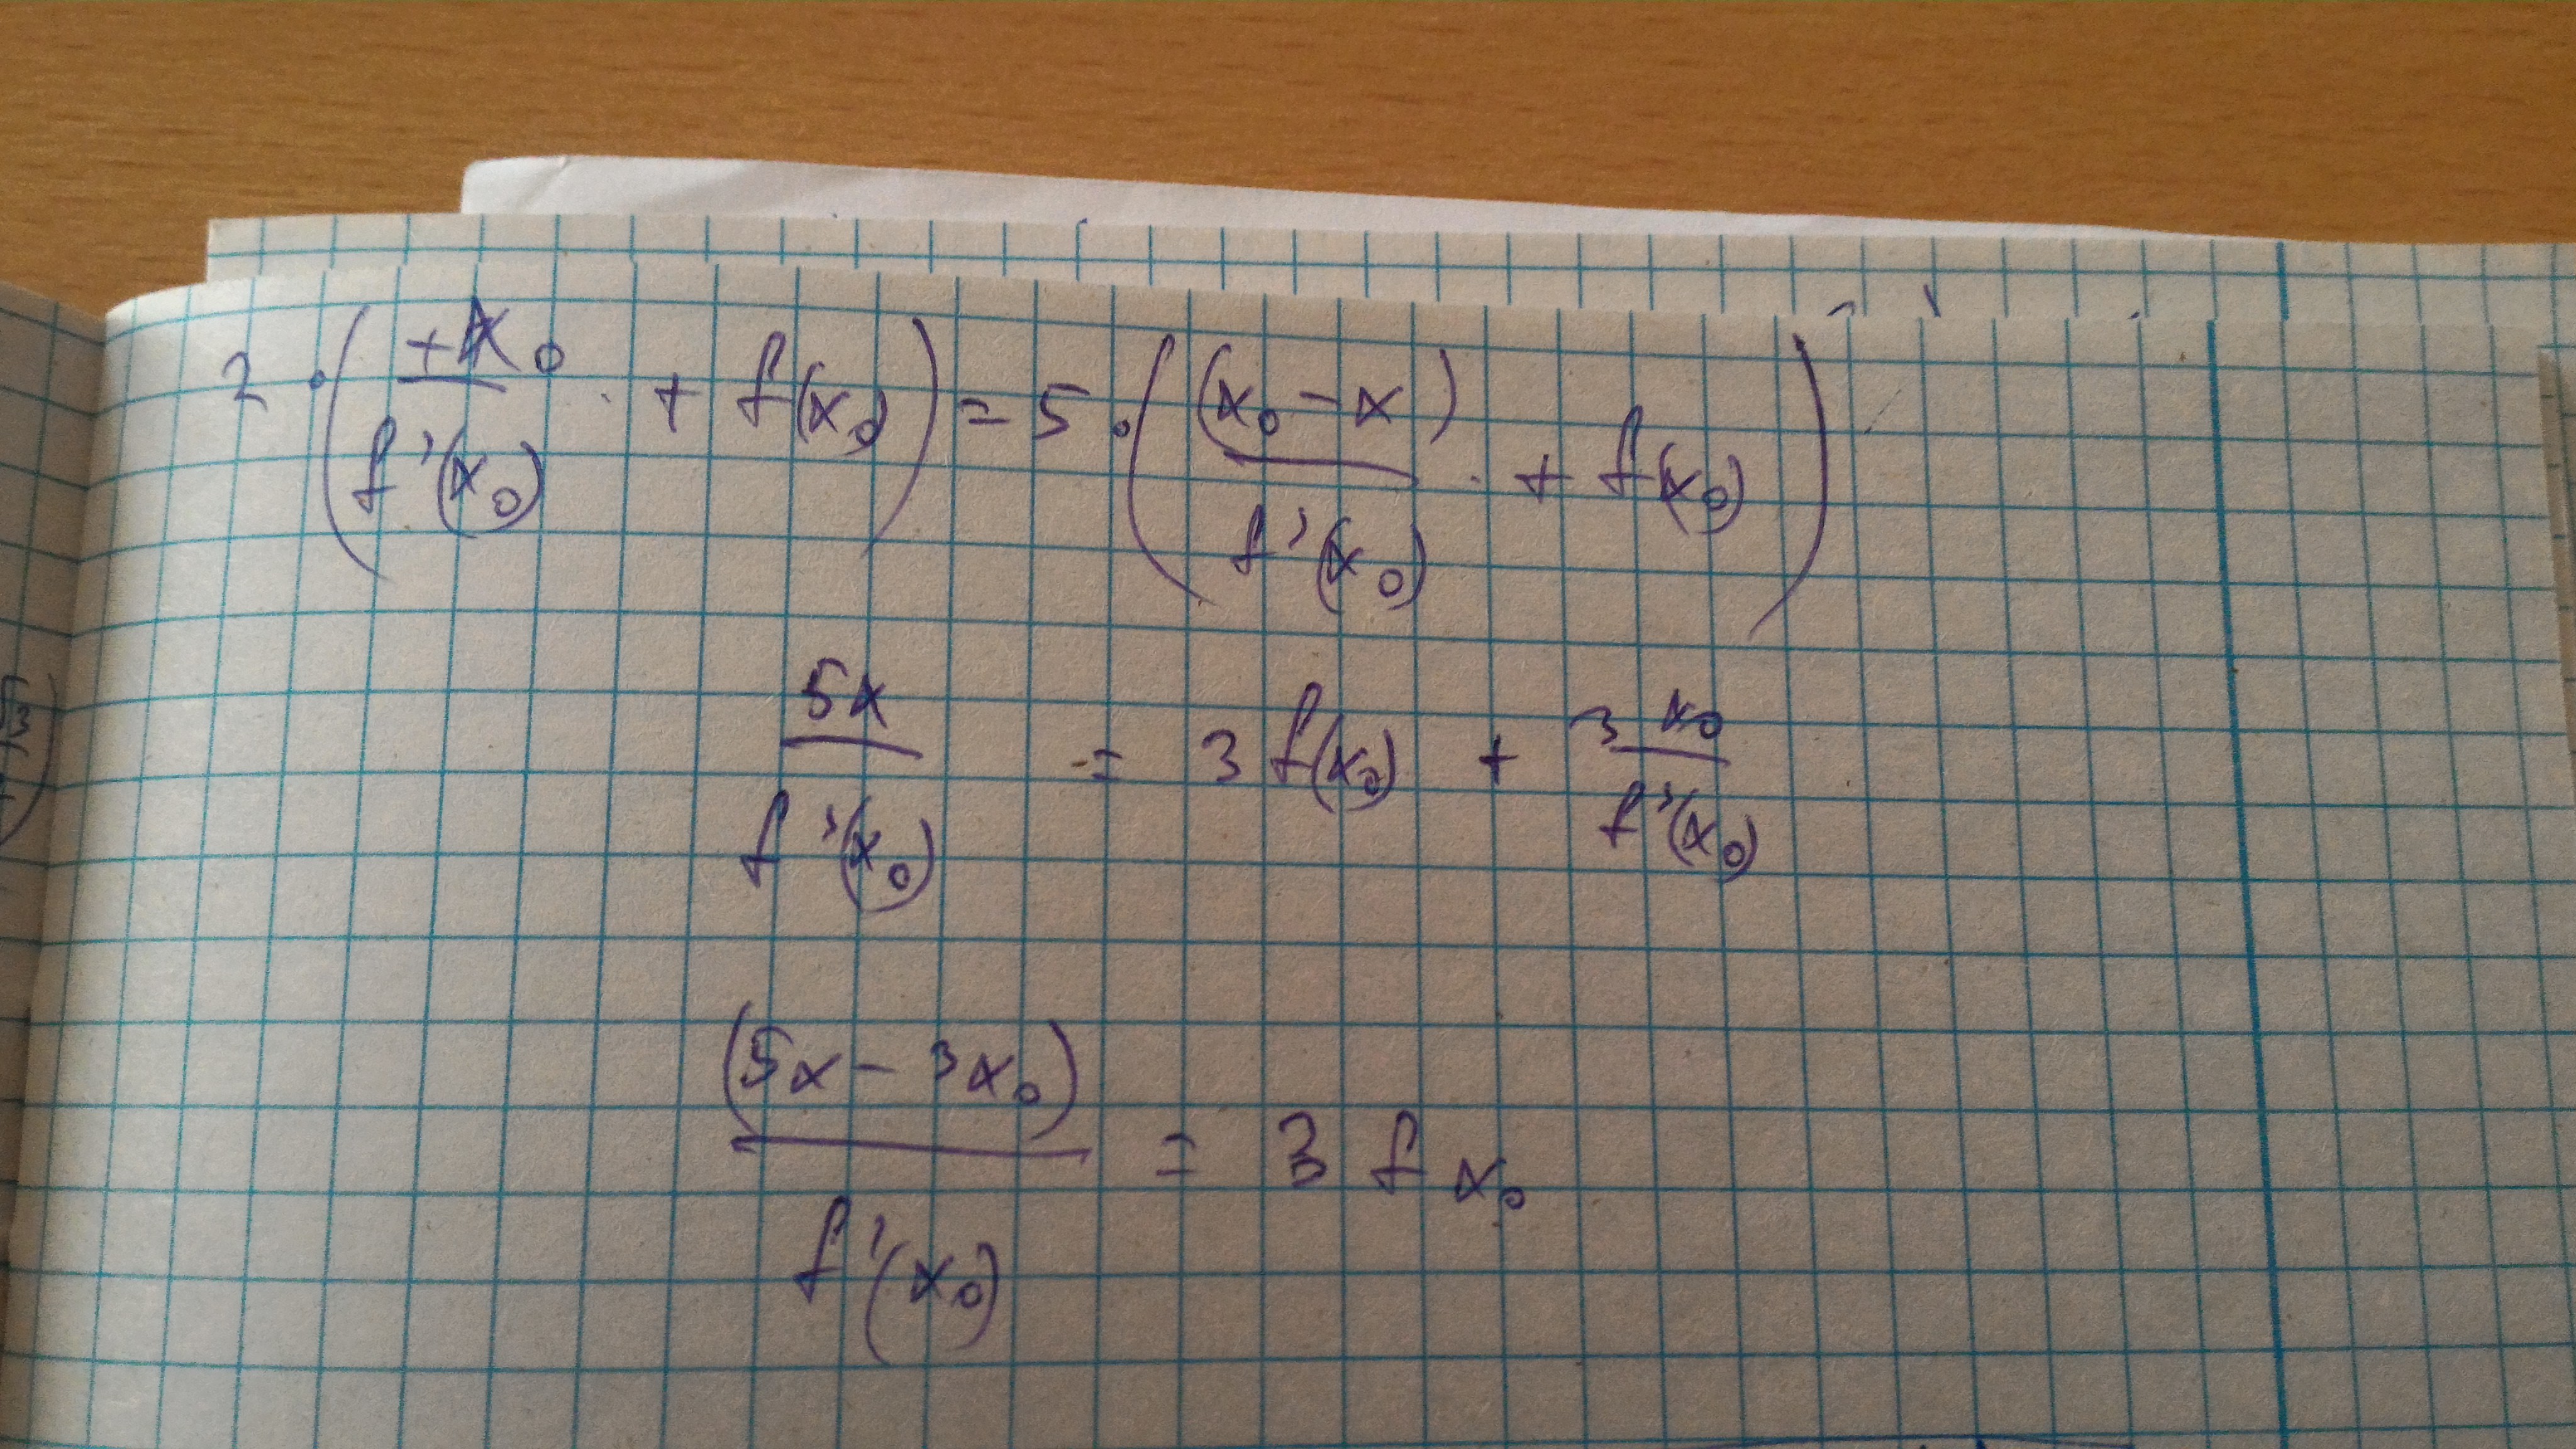 2 · ( +x₀ / f'(x₀) + f(x₀) ) = 5 · ( (x₀ - x) / f'(x₀) + f(x₀) )
5x / f'(x₀) = 3 f(x₀) + 3 x₀ / f'(x₀)
(5x - 3x₀) / f'(x₀) = 3 f x₀